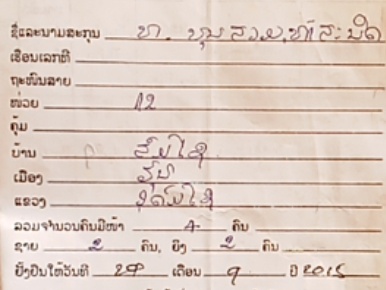 ຊື່ແລະນາມສະກຸນ ທ. ບຸນ
ເຮືອນເລກທີ
ຖະໜົນສາຍ
ໜ່ວຍ 12
ຄຸ້ມ
ບ້ານ
ເມືອງ ຮຸນ
ແຂວງ ອຸດົມໄຊ
ລວມຈຳນວນຄົນມີໜ້າ 4 ຄົນ
ຊາຍ 2 ຄົນ, ຍິງ 2 ຄົນ
ຢັ້ງຢືນໃຫ້ວັນທີ 29 ເດືອນ 9 ປີ 2015